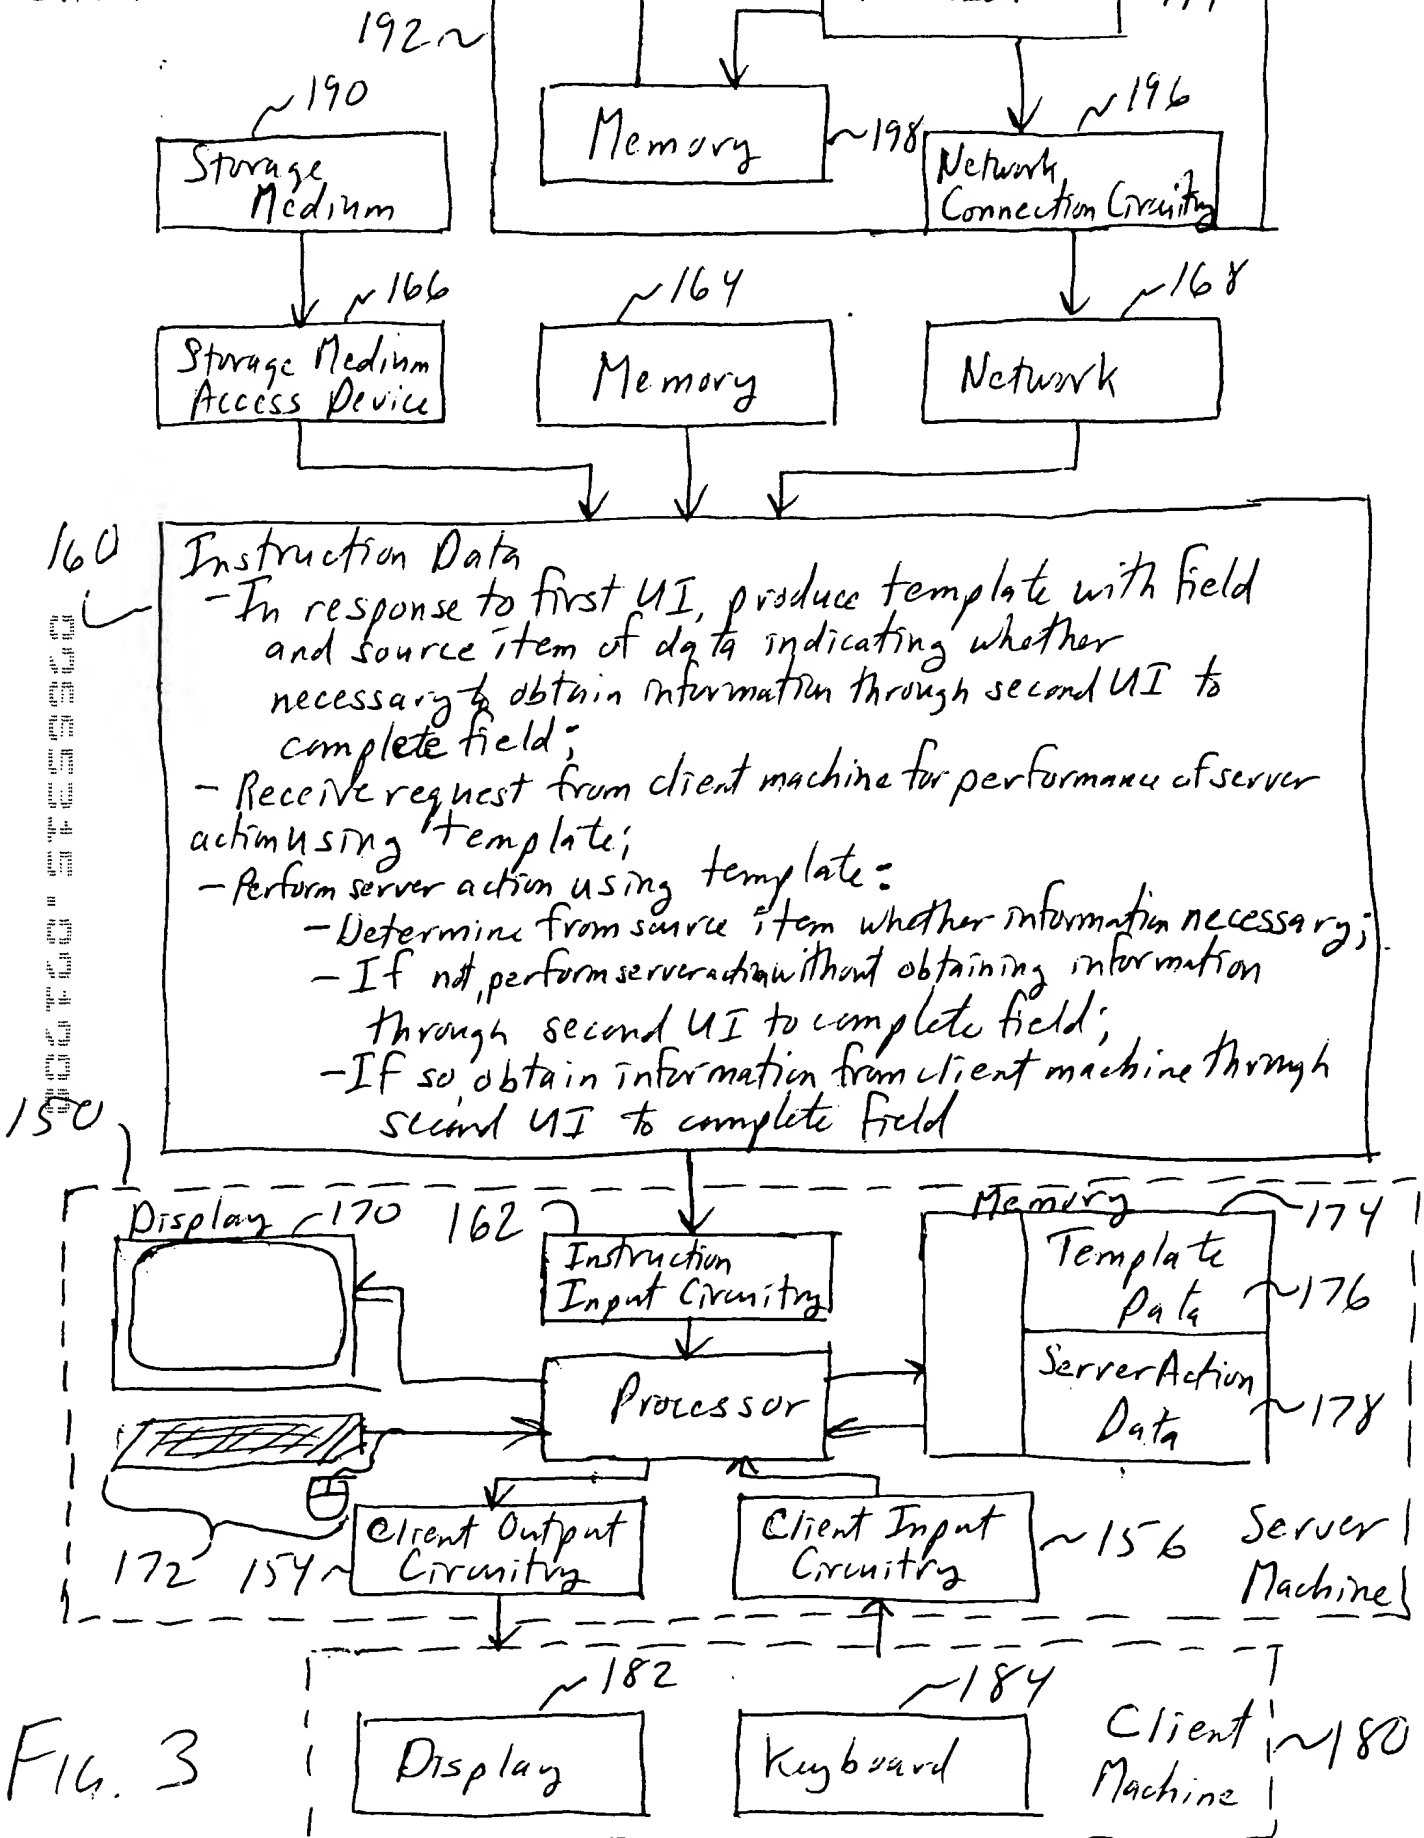 192
190
Memory
198
196
Storage
Medium
Network
Connection Circuitry
166
164
168
Storage Medium
Access Device
Memory
Network
160
Instruction Data
- In response to first UI, produce template with field
and source item of data indicating whether
necessary to obtain information through second UI to
complete field;
- Receive request from client machine for performance of server
action using template;
- Perform server action using template:
- Determine from source item whether information necessary;
- If not, perform server action without obtaining information
through second UI to complete field;
- If so, obtain information from client machine through
second UI to complete field
150
Display
170
162
Memory
174
Instruction
Input Circuitry
Template
Data
176
Processor
Server Action
Data
178
172
154
Client Output
Circuitry
Client Input
Circuitry
156
Server
Machine
182
184
Display
Keyboard
Client
Machine
180
FIG. 3